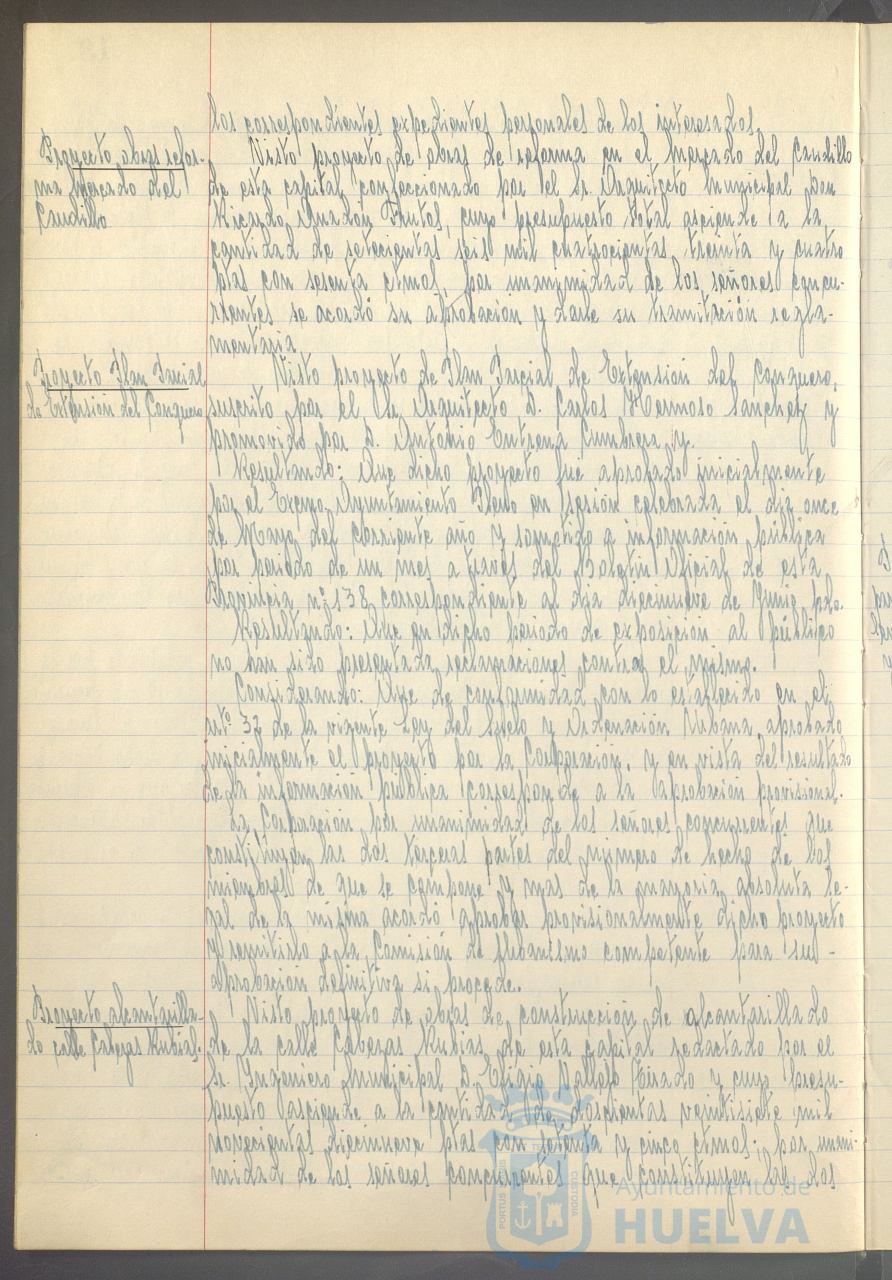 los correspondientes expedientes personales de los interesados.
Proyecto obras refor-
ma Mercado del
Caudillo
Visto proyecto de obras de reforma en el Mercado del Caudillo
de esta capital confeccionado por el Sr. Arquitecto Municipal Don
Ricardo Anadón Frutos, cuyo presupuesto total asciende a la
cantidad de setecientas seis mil cuatrocientas treinta y cuatro
ptas con sesenta ctmos, por unanimidad de los señores concu-
rrentes se acordó su aprobación y darle su tramitación regla-
mentaria.
Proyecto Plan Parcial
de Extensión del Conquero
Visto proyecto de Plan Parcial de Extensión del Conquero,
suscrito por el Sr. Arquitecto D. Carlos Hermoso Sanchez y
promovido por D. Antonio Entrena Cumbrera y.
Resultando: Que dicho proyecto fue aprobado inicialmente
por el Excmo. Ayuntamiento Pleno en sesión celebrada el día once
de Mayo del corriente año y sometido a información pública
por periodo de un mes a través del Boletín Oficial de esta
Provincia nº 138 correspondiente al dia diecinueve de Junio pdo.
Resultando: Que en dicho periodo de exposición al público
no han sido presentada reclamaciones contra el mismo.
Considerando: Que de conformidad con lo establecido en el
artº 32 de la vigente Ley del Suelo y Ordenación Urbana, aprobado
inicialmente el proyecto por la Corporación, y en vista del resultado
de la información pública corresponde a la aprobación provisional.
La Corporación por unanimidad de los señores concurrentes que
constituyen las dos terceras partes del número de hecho de los
miembros de que se compone y mas de la mayoría absoluta le-
gal de la misma acordó aprobar provisionalmente dicho proyecto
y remitirlo a la Comisión de Urbanismo competente para su
aprobación definitiva si procede.
Proyecto alcantarilla-
do calle Cabezas Rubias.
Visto proyecto de obras de construcción de alcantarillado
de la calle Cabezas Rubias de esta capital redactado por el
Sr. Ingeniero Municipal D. Eligio Tirado y cuyo presu-
puesto asciende a la cantidad de doscientas veintisiete mil
novecientas diecinueve ptas con y cinco ctmos; por unani-
midad de los señores concurrentes que constituyen las dos
PORTUS CUSTODIA
Ayuntamiento de
HUELVA